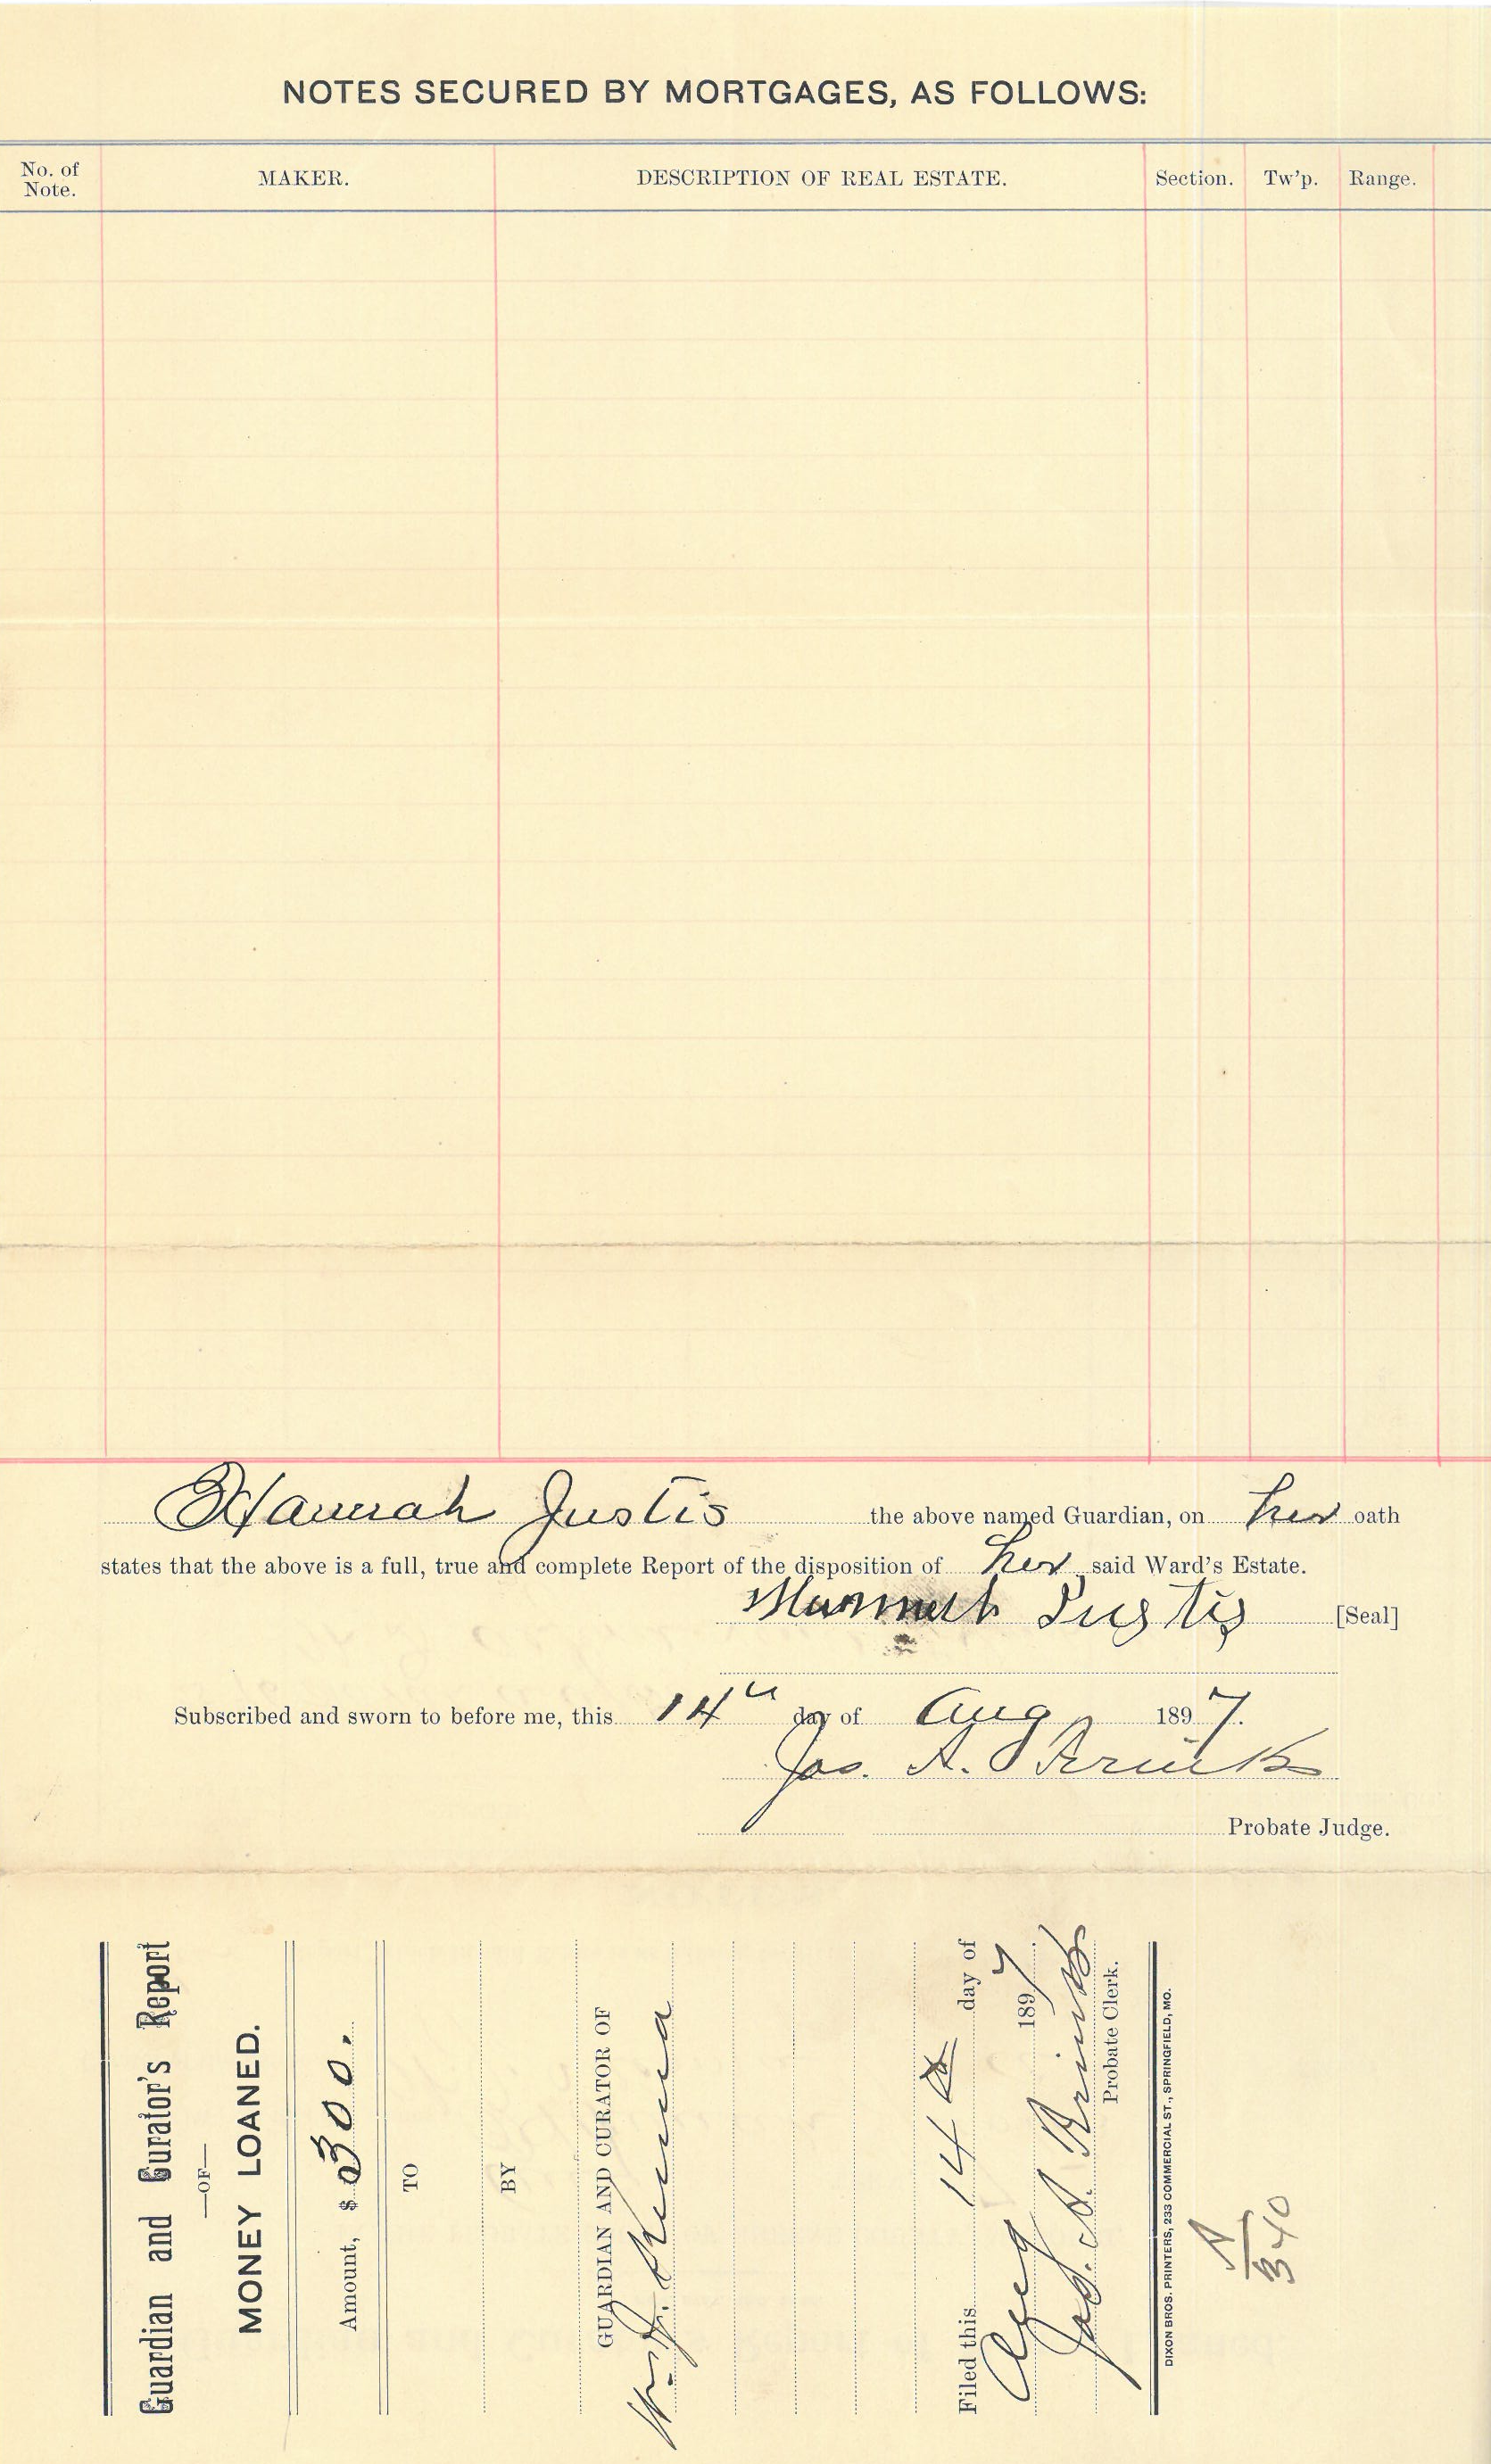 NOTES SECURED BY MORTGAGES, AS FOLLOWS:
No. of Note. MAKER. DESCRIPTION OF REAL ESTATE. Section. Tw'p. Range.
Hannah Justis the above named Guardian, on her oath
states that the above is a full, true and complete Report of the disposition of her said Ward's Estate.
Hannah Justis [Seal]
Subscribed and sworn to before me, this 14th day of Aug 1897.
Jas. A.
Probate Judge.
Guardian and Curator's Report
—OF—
MONEY LOANED.
Amount, $ 300.
TO
BY
GUARDIAN AND CURATOR OF
Filed this 14th day of
Aug 1897
Jas. A.
Probate Clerk.
DIXON BROS. PRINTERS, 233 COMMERCIAL ST., SPRINGFIELD, MO.
A
340